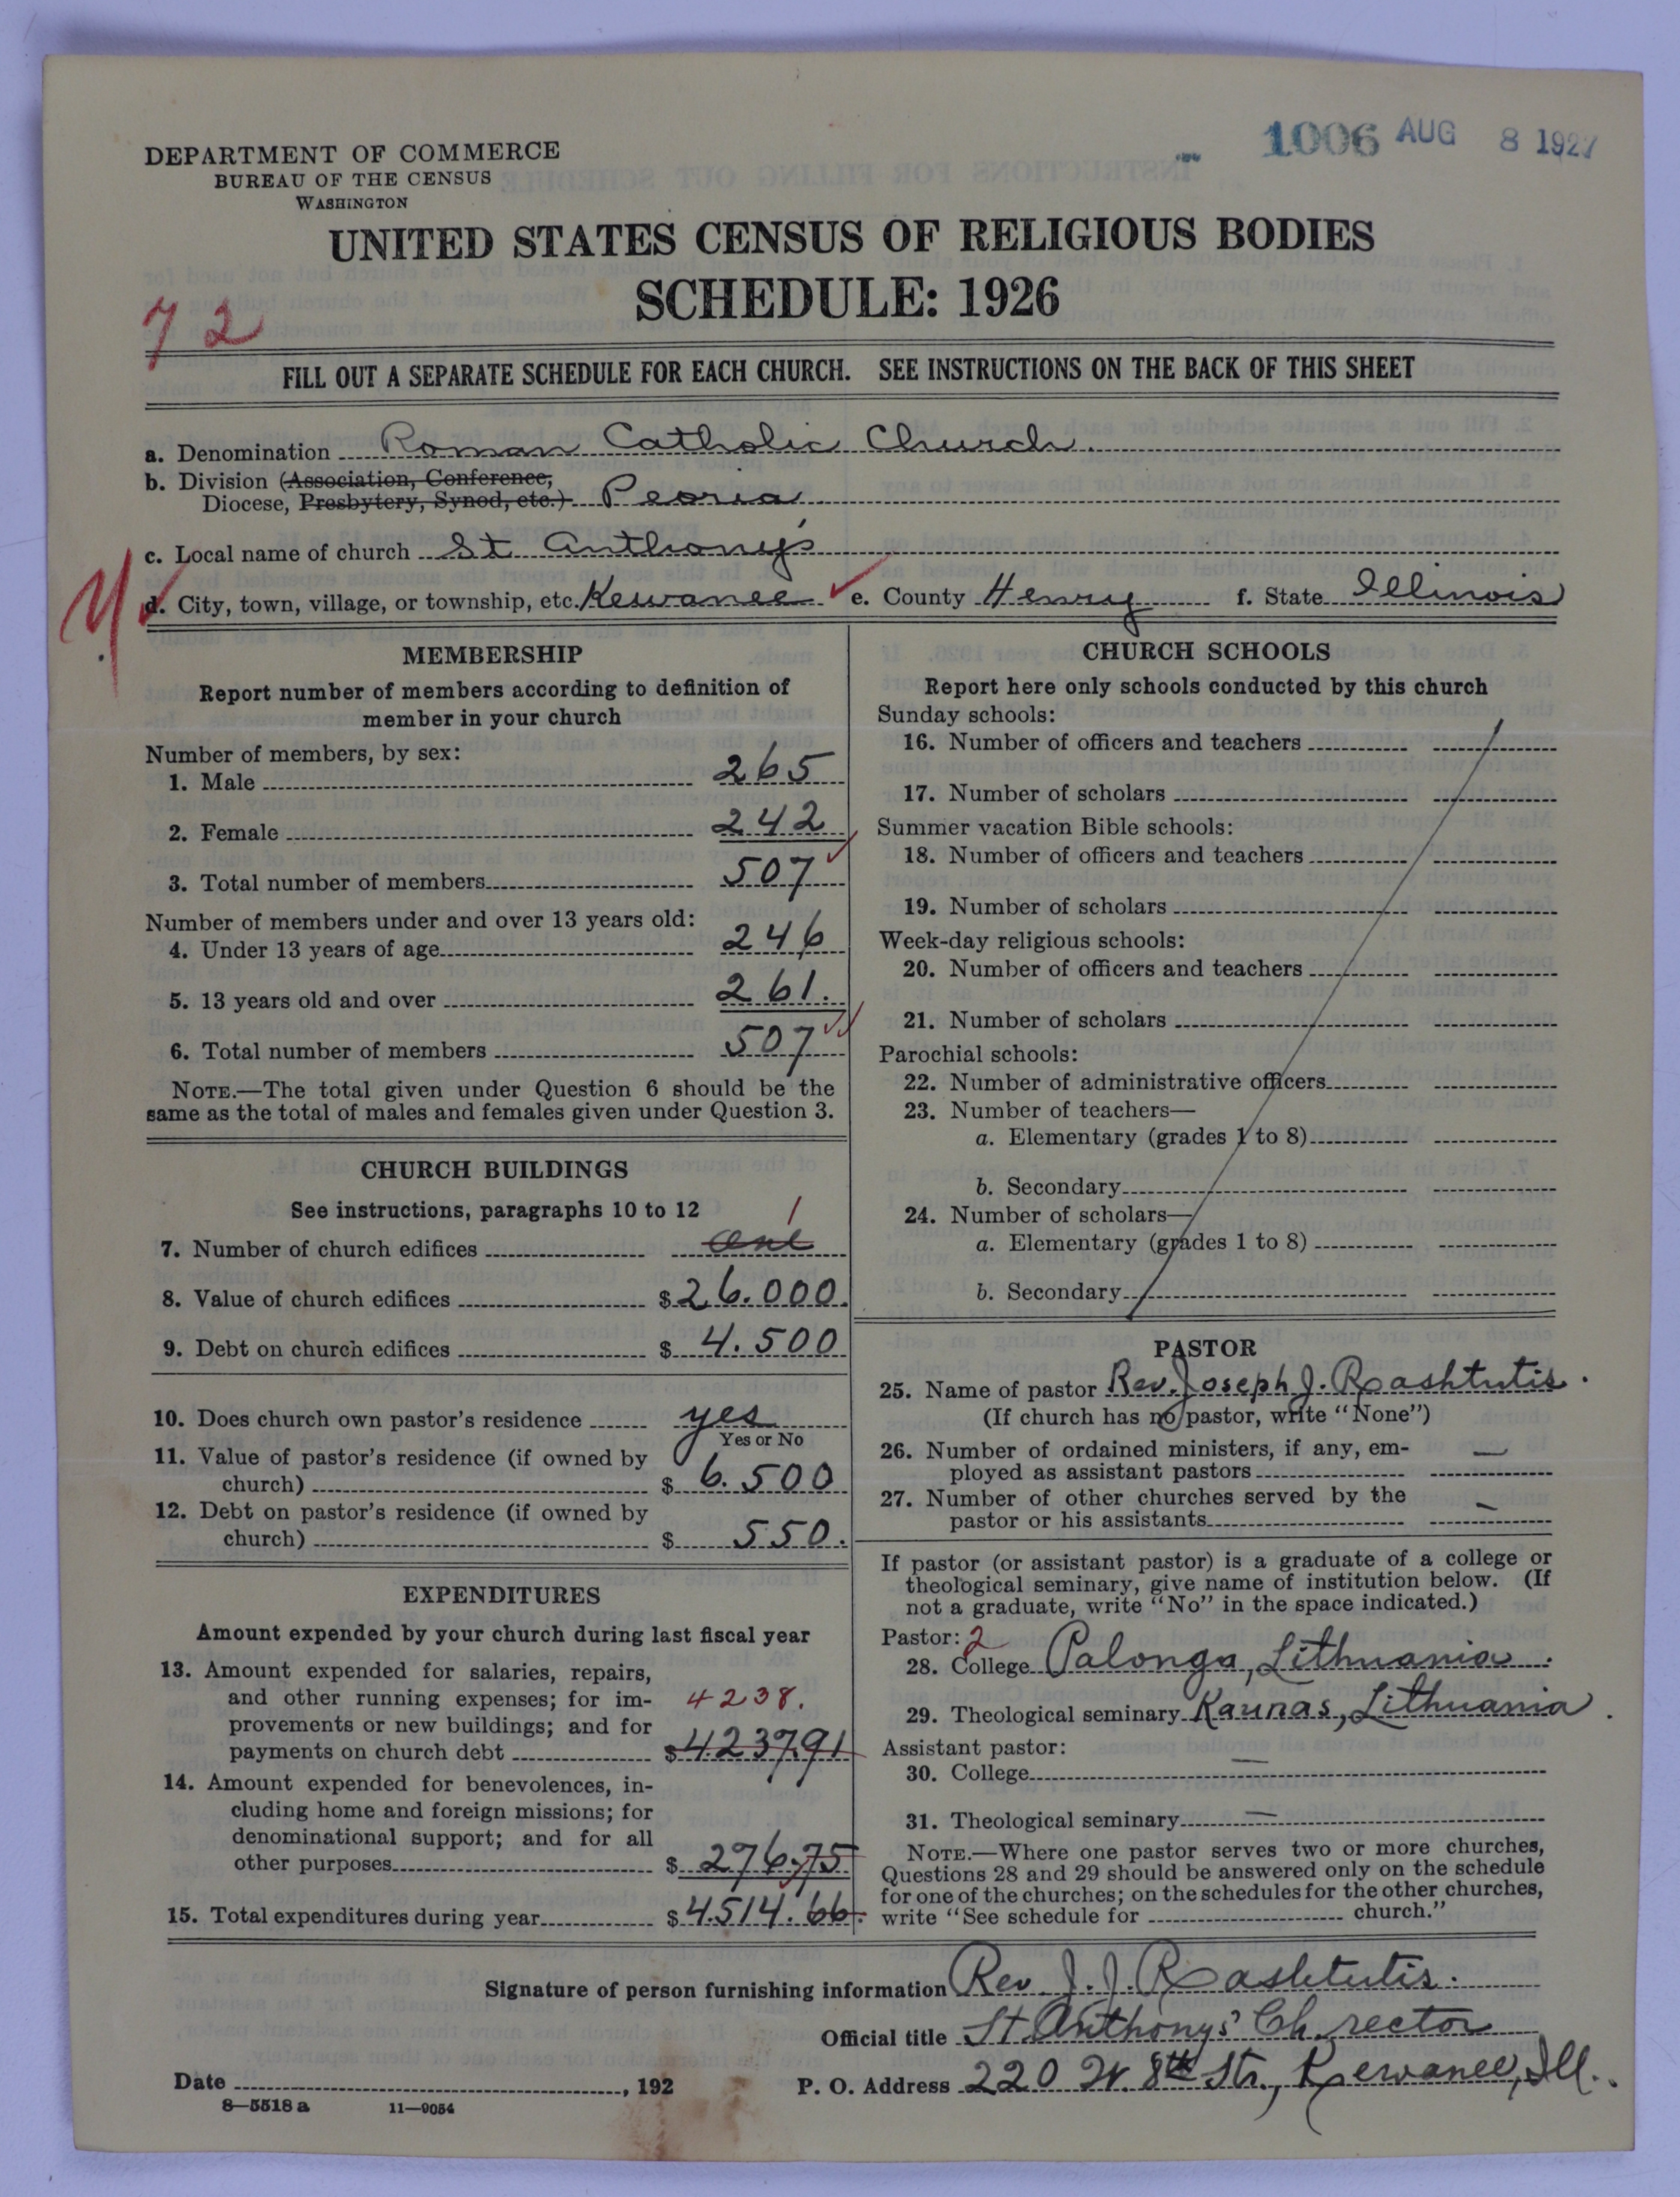 1006 AUG 8 1927
DEPARTMENT OF COMMERCE
BUREAU OF THE CENSUS
WASHINGTON
UNITED STATES CENSUS OF RELIGIOUS BODIES
SCHEDULE: 1926
72
FILL OUT A SEPARATE SCHEDULE FOR EACH CHURCH. SEE INSTRUCTIONS ON THE BACK OF THIS SHEET
a. Denomination Roman Catholic Church.
b. Division (Association, Conference,
Diocese, Presbytery, Synod, etc.) Peoria
c. Local name of church St Anthony's
d. City, town, village, or township, etc. Kewanee e. County Henry f. State Illinois
MEMBERSHIP
Report number of members according to definition of
member in your church
Number of members, by sex:
1. Male 265
2. Female 242
3. Total number of members 507
Number of members under and over 13 years old:
4. Under 13 years of age 246
5. 13 years old and over 261.
6. Total number of members 507
NOTE.—The total given under Question 6 should be the
same as the total of males and females given under Question 3.
CHURCH BUILDINGS
See instructions, paragraphs 10 to 12
1
7. Number of church edifices one
8. Value of church edifices $26.000.
9. Debt on church edifices $ 4.500
10. Does church own pastor's residence yes
Yes or No
11. Value of pastor's residence (if owned by
church) $ 6.500
12. Debt on pastor's residence (if owned by
church) $ 550.
EXPENDITURES
Amount expended by your church during last fiscal year
13. Amount expended for salaries, repairs,
and other running expenses; for im- 4238.
provements or new buildings; and for
payments on church debt $4.237.91
14. Amount expended for benevolences, in-
cluding home and foreign missions; for
denominational support; and for all
other purposes $ 276.75
15. Total expenditures during year $4.514.66.
CHURCH SCHOOLS
Report here only schools conducted by this church
Sunday schools:
16. Number of officers and teachers
17. Number of scholars
Summer vacation Bible schools:
18. Number of officers and teachers
19. Number of scholars
Week-day religious schools:
20. Number of officers and teachers
21. Number of scholars
Parochial schools:
22. Number of administrative officers
23. Number of teachers—
a. Elementary (grades 1 to 8)
b. Secondary
24. Number of scholars—
a. Elementary (grades 1 to 8)
b. Secondary
PASTOR
25. Name of pastor Rev. Joseph J. Rashtutis.
(If church has no pastor, write "None")
26. Number of ordained ministers, if any, em- —
ployed as assistant pastors
27. Number of other churches served by the —
pastor or his assistants
If pastor (or assistant pastor) is a graduate of a college or
theological seminary, give name of institution below. (If
not a graduate, write "No" in the space indicated.)
Pastor: 2
28. College Palonga, Lithuania.
29. Theological seminary Kaunas, Lithuania.
Assistant pastor:
30. College —
31. Theological seminary —
NOTE.—Where one pastor serves two or more churches,
Questions 28 and 29 should be answered only on the schedule
for one of the churches; on the schedules for the other churches,
write "See schedule for church."
Signature of person furnishing information Rev J. J. Rashtutis.
Official title St. Anthonys' Ch. rector
Date , 192 P. O. Address 220 W. 8th Str., Kewanee, Ill.
8—5518 a 11—9054